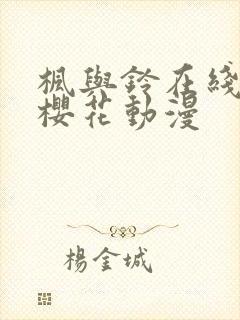 楓與鈴在綫
櫻花動漫
楊金城